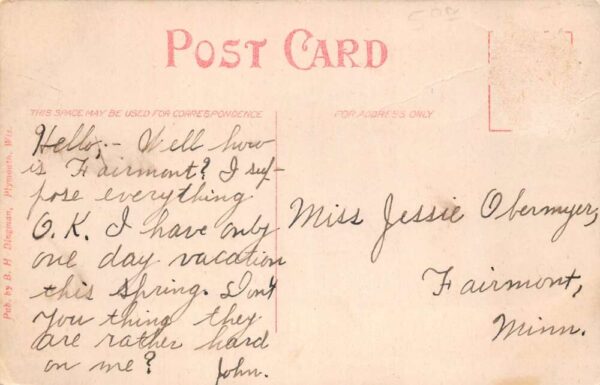 POST CARD
THIS SPACE MAY BE USED FOR CORRESPONDENCE
FOR ADDRESS ONLY
Pub. by B. H. Dingman, Plymouth, Wis.
Hello;- Well how
is Fairmont? I sup-
pose everything
O.K. I have only
one day vacation
this spring. Don't
you thing they
are rather hard
on me?
John.
Miss Jessie Obermyer,
Fairmont,
Minn.